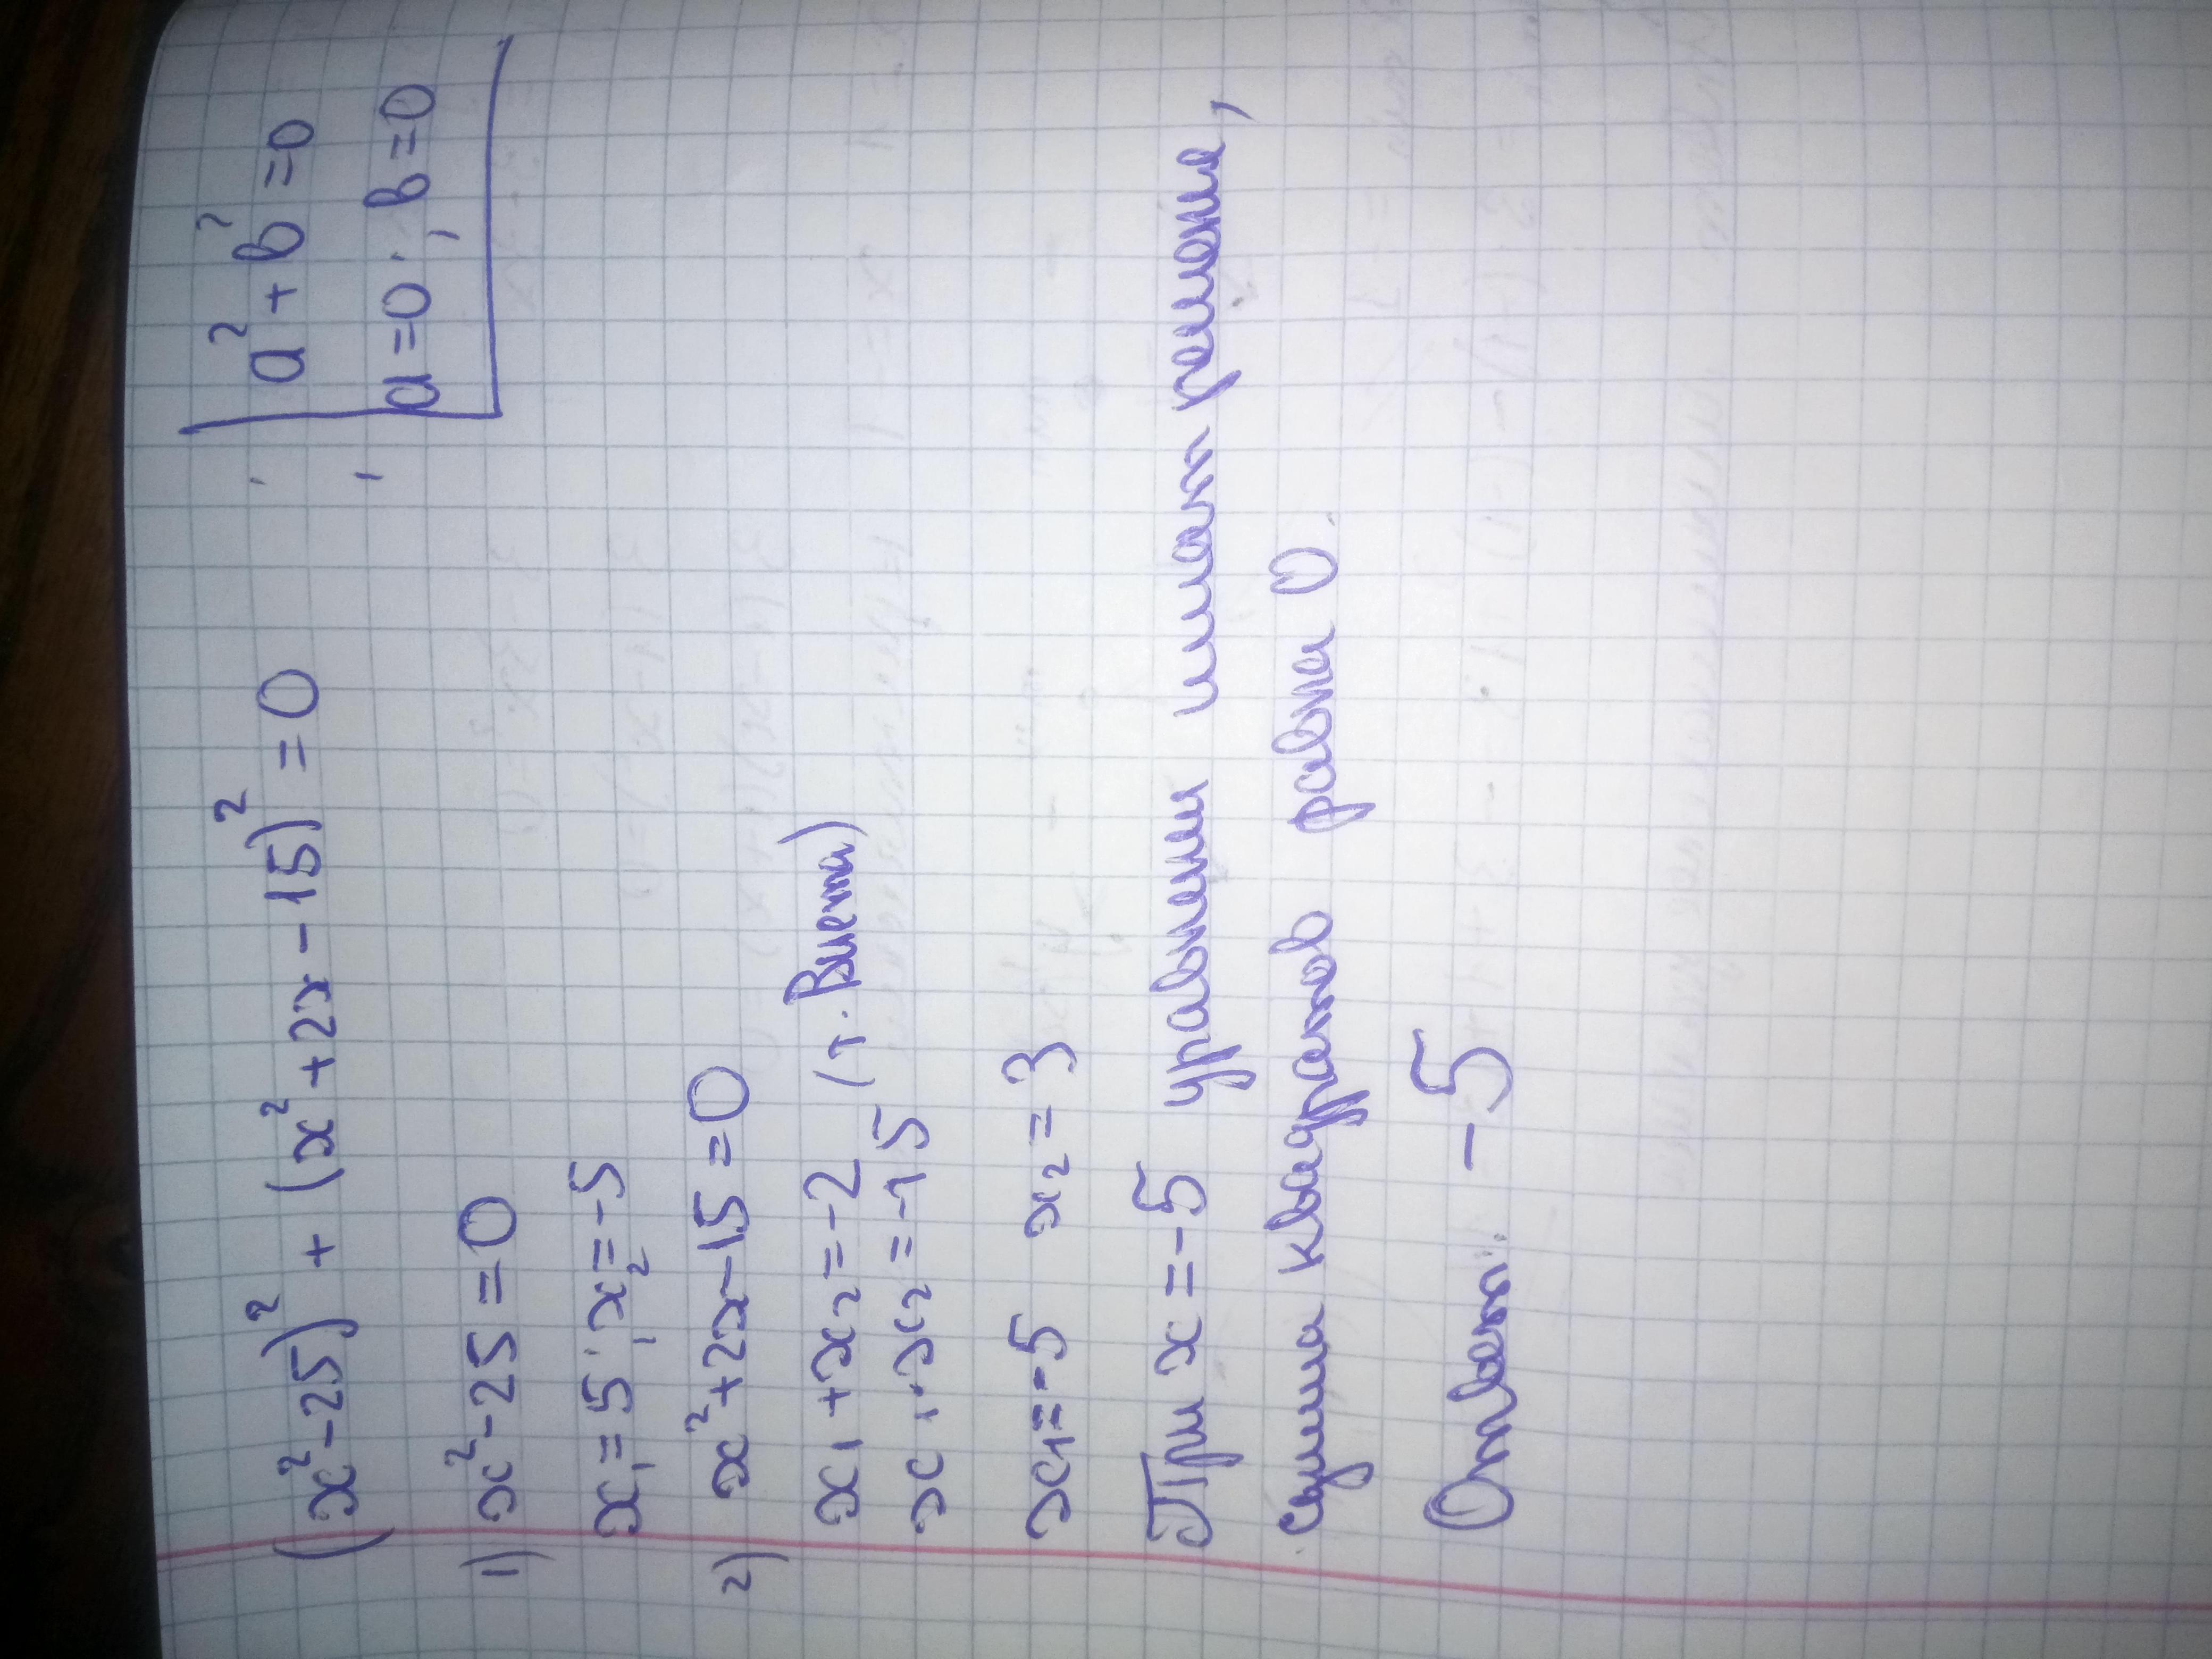 (x²-25)² + (x²+2x-15)² = 0
a² + b² = 0
a = 0 ; b = 0
1) x²-25 = 0
x₁ = 5 ; x₂ = -5
2) x²+2x-15 = 0
x₁ + x₂ = -2 (т. Виета)
x₁ · x₂ = -15
x₁ = -5 x₂ = 3
При x = -5 уравнении имеют решение,
сумма квадратов равна 0
Ответ: -5